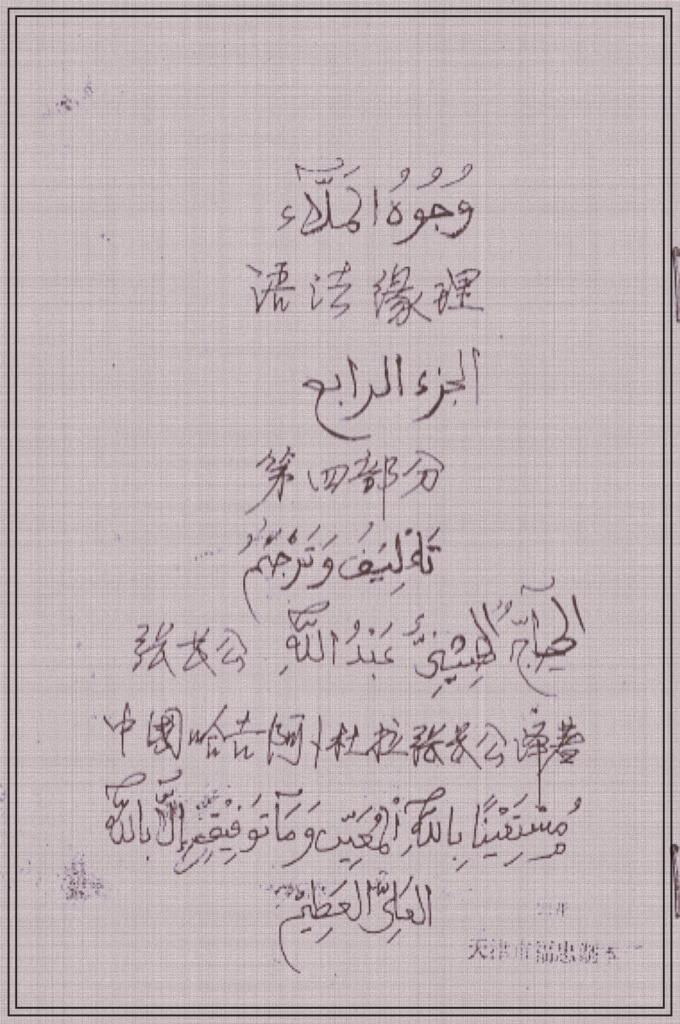 وُجُوهُ الْمَلَّاء
语法缘理
الجزء الرابع
第四部分
تَأْلِيفُ وَتَرْجَمَةُ
الحآجُّ الصِّينِيُّ عَبْدُ اللّٰهِ 张长公
中國哈吉阿卜杜拉张长公译著
مُسْتَعِينًا بِاللّٰهِ الْمُعِين وَمَا تَوْفِيقِي إِلَّا بِاللّٰهِ
العَلِيِّ العَظِيمِ
天津市